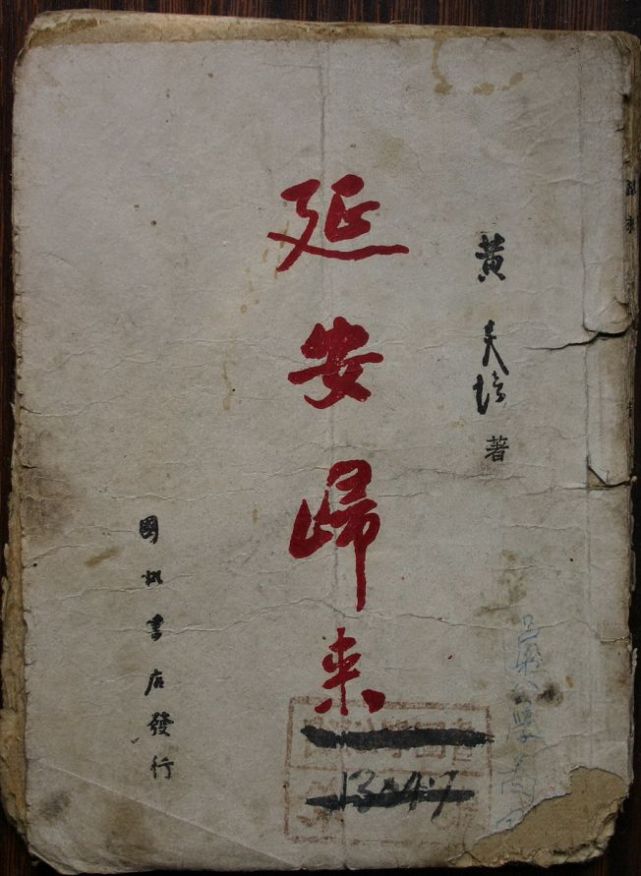 黄炎培著
延安歸来
國訊書店發行
1304.7